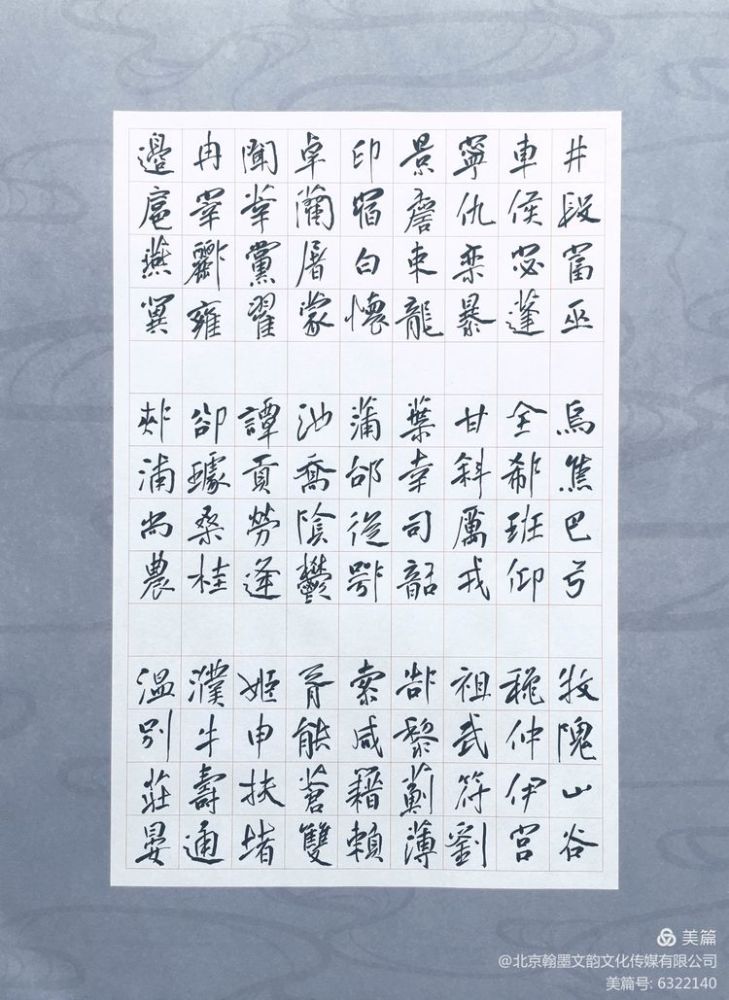 井段富巫 烏焦巴弓 牧隗山谷
車侯宓蓬 全郗班仰 仲伊宮
寧仇栾暴 甘斜厲戎 祖武符劉
景詹束龍 葉幸司韶 郜黎薊薄
印宿白懷 蒲邰從鄂 索咸籍賴
卓藺屠蒙 池喬陰鬱 胥能蒼雙
聞莘黨翟 譚貢勞逄 姬申扶堵
冉宰酈雍 郤璩桑桂 濮牛壽通
邊扈燕冀 郟浦尚農 温別莊晏
美篇
@北京翰墨文韵文化传媒有限公司
美篇号: 6322140